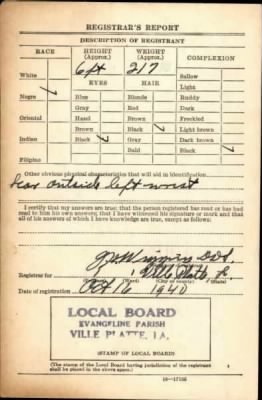 REGISTRAR'S REPORT
DESCRIPTION OF REGISTRANT
RACE HEIGHT (Approx.) WEIGHT (Approx.) COMPLEXION
6 ft 217
White Sallow
EYES HAIR Light
Negro Blue Blonde Ruddy
Gray Red Dark
Oriental Hazel Brown Freckled
Brown Black Light brown
Indian Black Gray Dark brown
Bald Black
Filipino
Other obvious physical characteristics that will aid in identification
Scar outside left wrist
I certify that my answers are true; that the person registered has read or has had
read to him his own answers; that I have witnessed his signature or mark and that
all of his answers of which I have knowledge are true, except as follows:
Registrar for 1 Ville Platte La
(Ward) (City or county) (State)
Date of registration Oct 16 1940
LOCAL BOARD
EVANGELINE PARISH
VILLE PLATTE, LA.
(STAMP OF LOCAL BOARD)
(The stamp of the Local Board having jurisdiction of the registrant
shall be placed in the above space.)